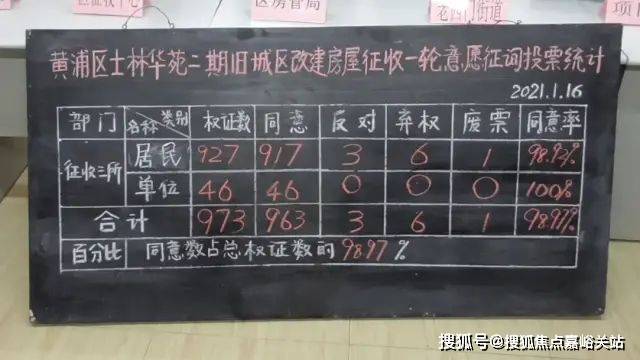 区房管局
老西门街道
黄浦区士林华苑二期旧城区改建房屋征收一轮意愿征询投票统计
2021.1.16
部门 名称 类别 权证数 同意 反对 弃权 废票 同意率
征收三所 居民 927 917 3 6 1 98.92%
单位 46 46 0 0 0 100%
合计 973 963 3 6 1 98.97%
百分比 同意数占总权证数的 98.97 %
搜狐号@搜狐焦点嘉峪关站